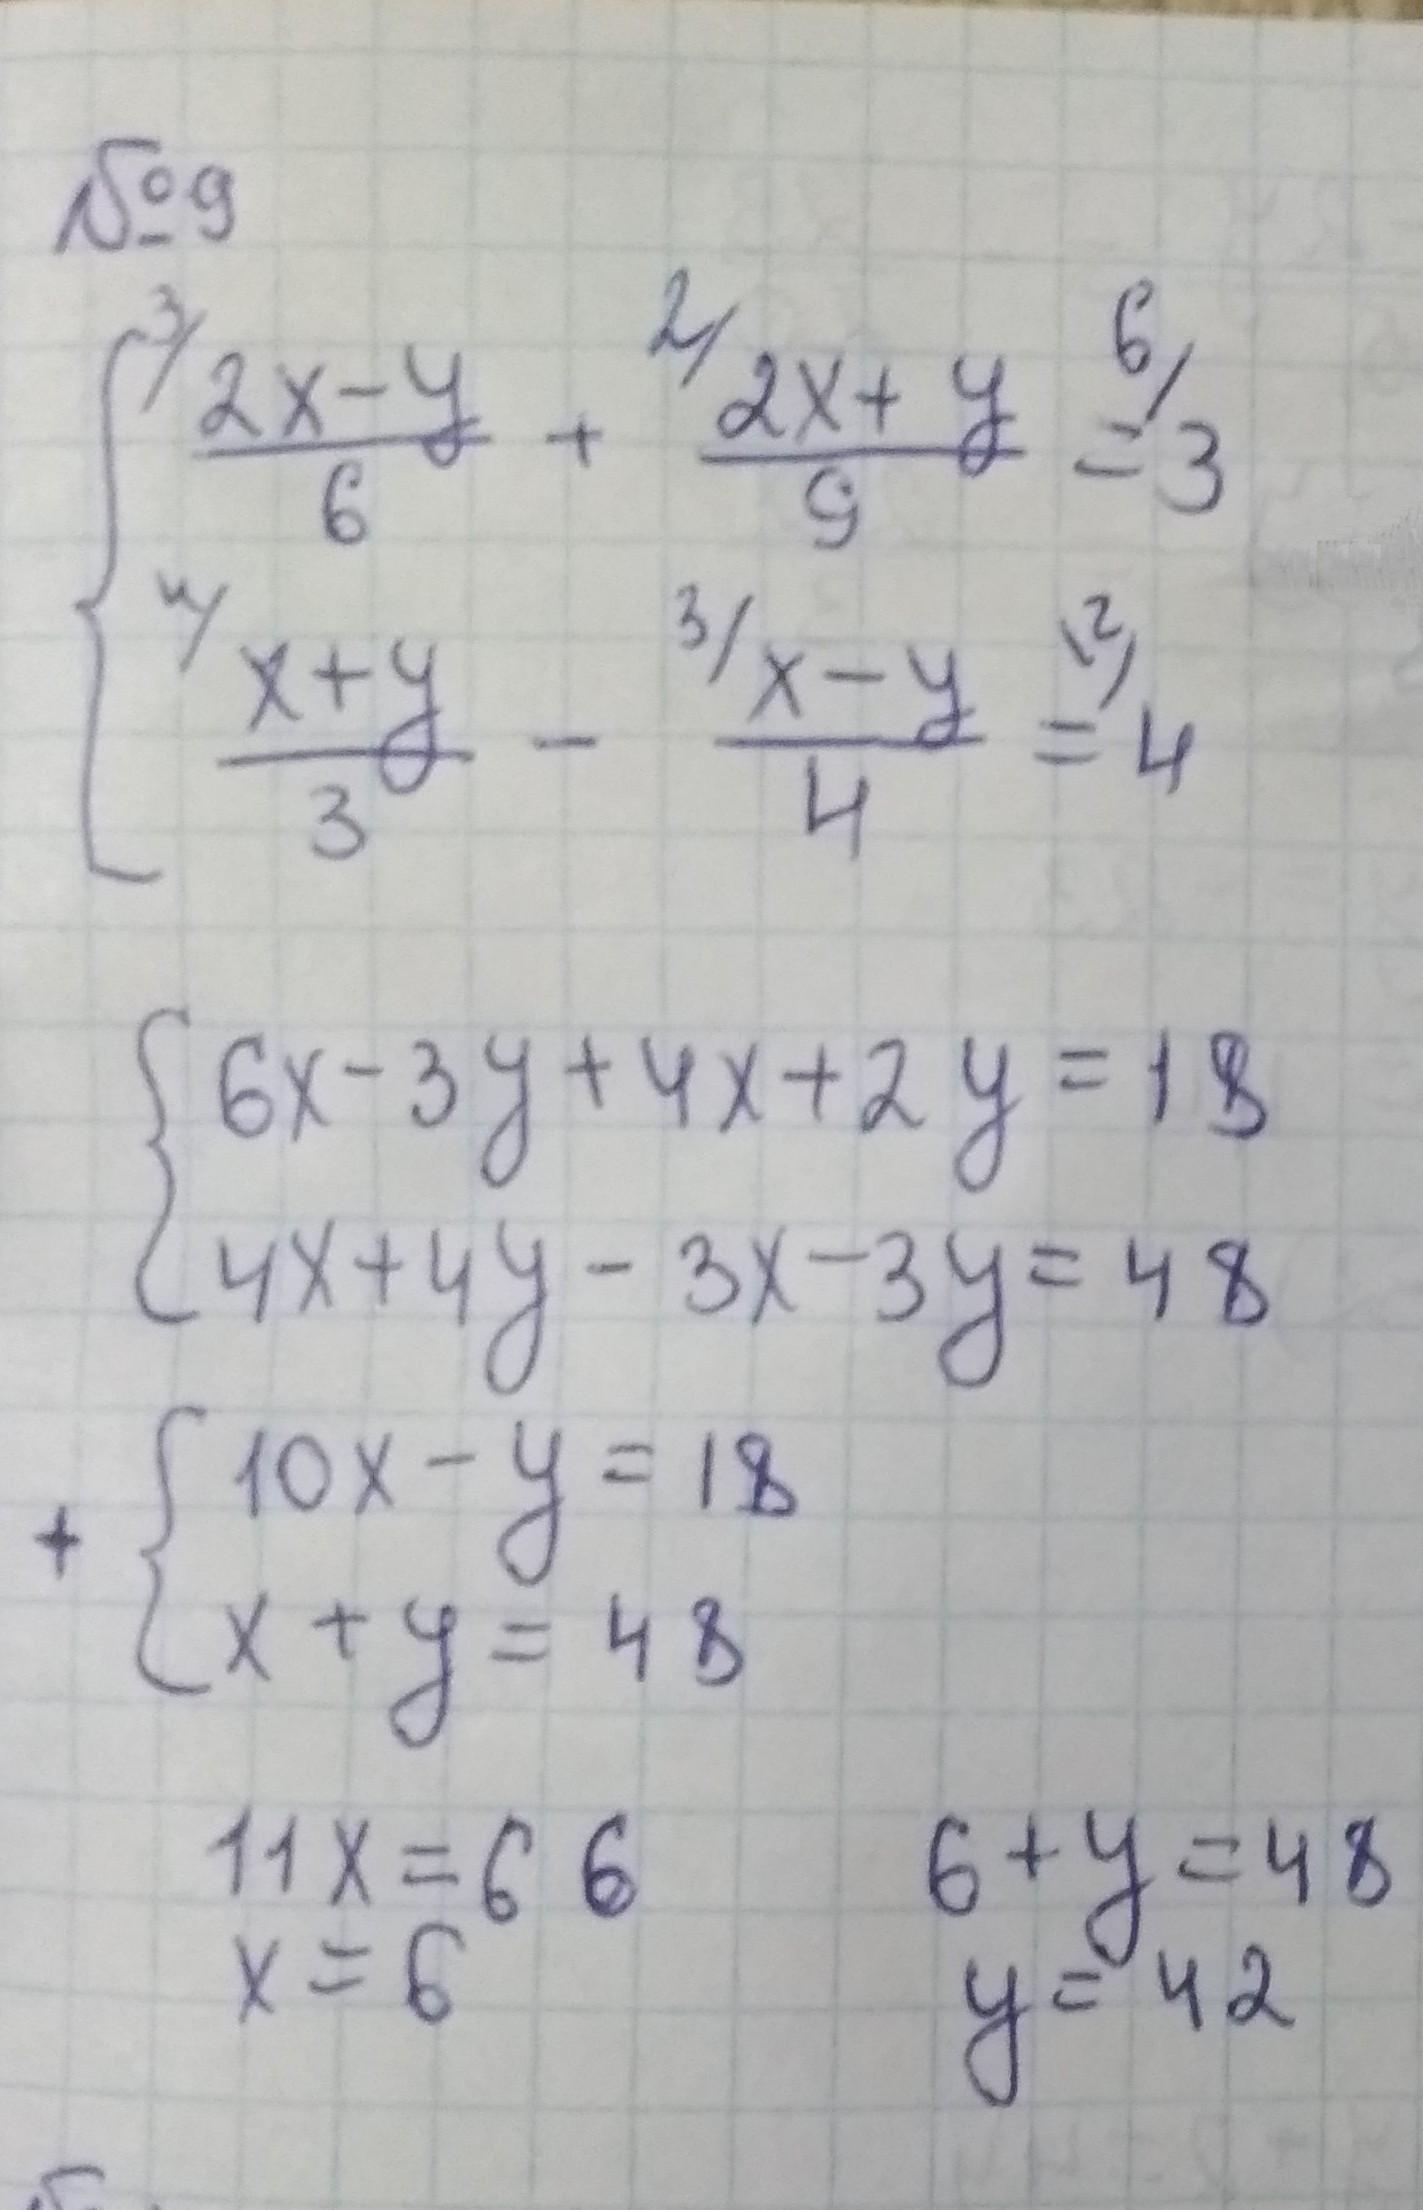 №9
3/ (2x-y)/6 + 2/ (2x+y)/9 = 6/ 3
4/ (x+y)/3 - 3/ (x-y)/4 = 12/ 4
6x-3y+4x+2y=18
4x+4y-3x-3y=48
10x-y=18
+
x+y=48
11x=66 6+y=48
x=6 y=42